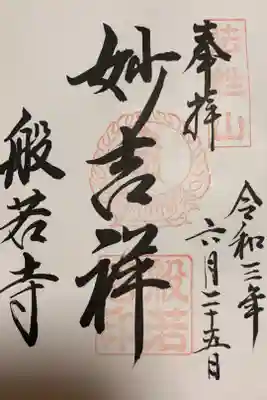 奉拝
法性山
令和三年
六月二十五日
妙吉祥
般若寺